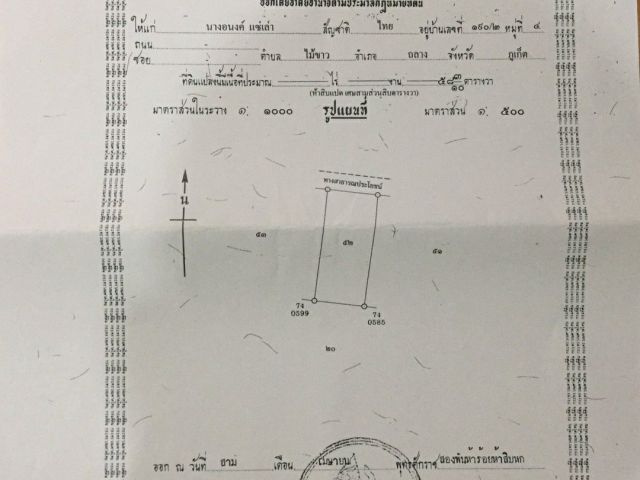 ออกโดยอาศัยอำนาจตามประมวลกฎหมายที่ดิน
ให้แก่ นางอนงค์ แซ่เล่า สัญชาติ ไทย อยู่บ้านเลขที่ ๑๙๐/๒ หมู่ที่ ๔
ถนน
ซอย ตำบล ไม้ขาว อำเภอ ถลาง จังหวัด ภูเก็ต
ที่ดินแปลงนี้มีเนื้อที่ประมาณ ไร่ งาน ๕๘ ๓/๑๐ ตารางวา
(ห้าสิบแปด เศษสามส่วนสิบตารางวา)
มาตราส่วนในระวาง ๑: ๑๐๐๐ รูปแผนที่ มาตราส่วน ๑: ๕๐๐
ทางสาธารณประโยชน์
น
๕๓ ๕๒ ๕๑
74
0599
74
0585
๒๐
ออก ณ วันที่ สาม เดือน เมษายน พุทธศักราช สองพันห้าร้อยห้าสิบหก